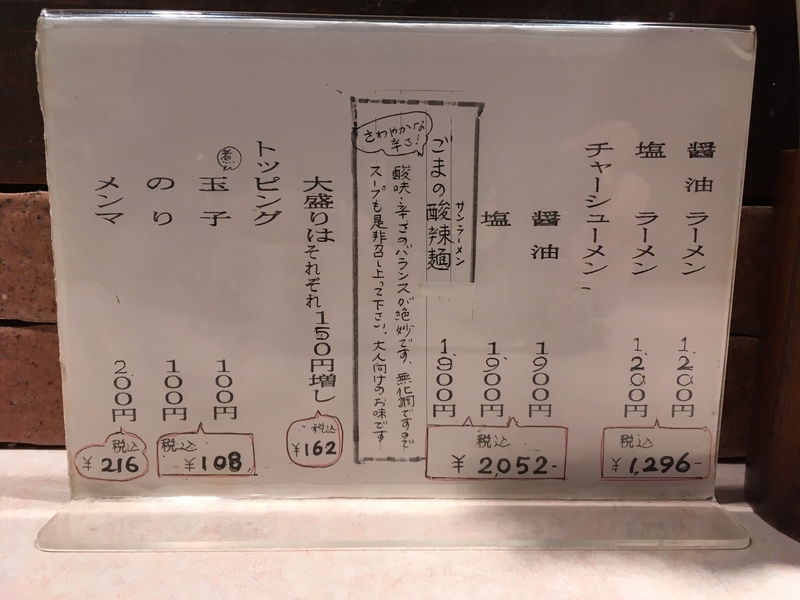 醤油ラーメン 1,200円
塩ラーメン 1,200円
税込 ¥1,296-
チャーシューメン
醤油 1,900円
塩 1,900円
サンラーメン
ごまの酸辣麺 1,900円
税込 ¥2,052-
さわやかな辛さ!
酸味・辛さのバランスが絶妙です。無化調ですので
スープも是非召し上って下さい。大人向けのお味です
大盛りはそれぞれ150円増し
税込 ¥162
トッピング
煮 玉子 100円
のり 100円
税込 ¥108
メンマ 200円
税込 ¥216